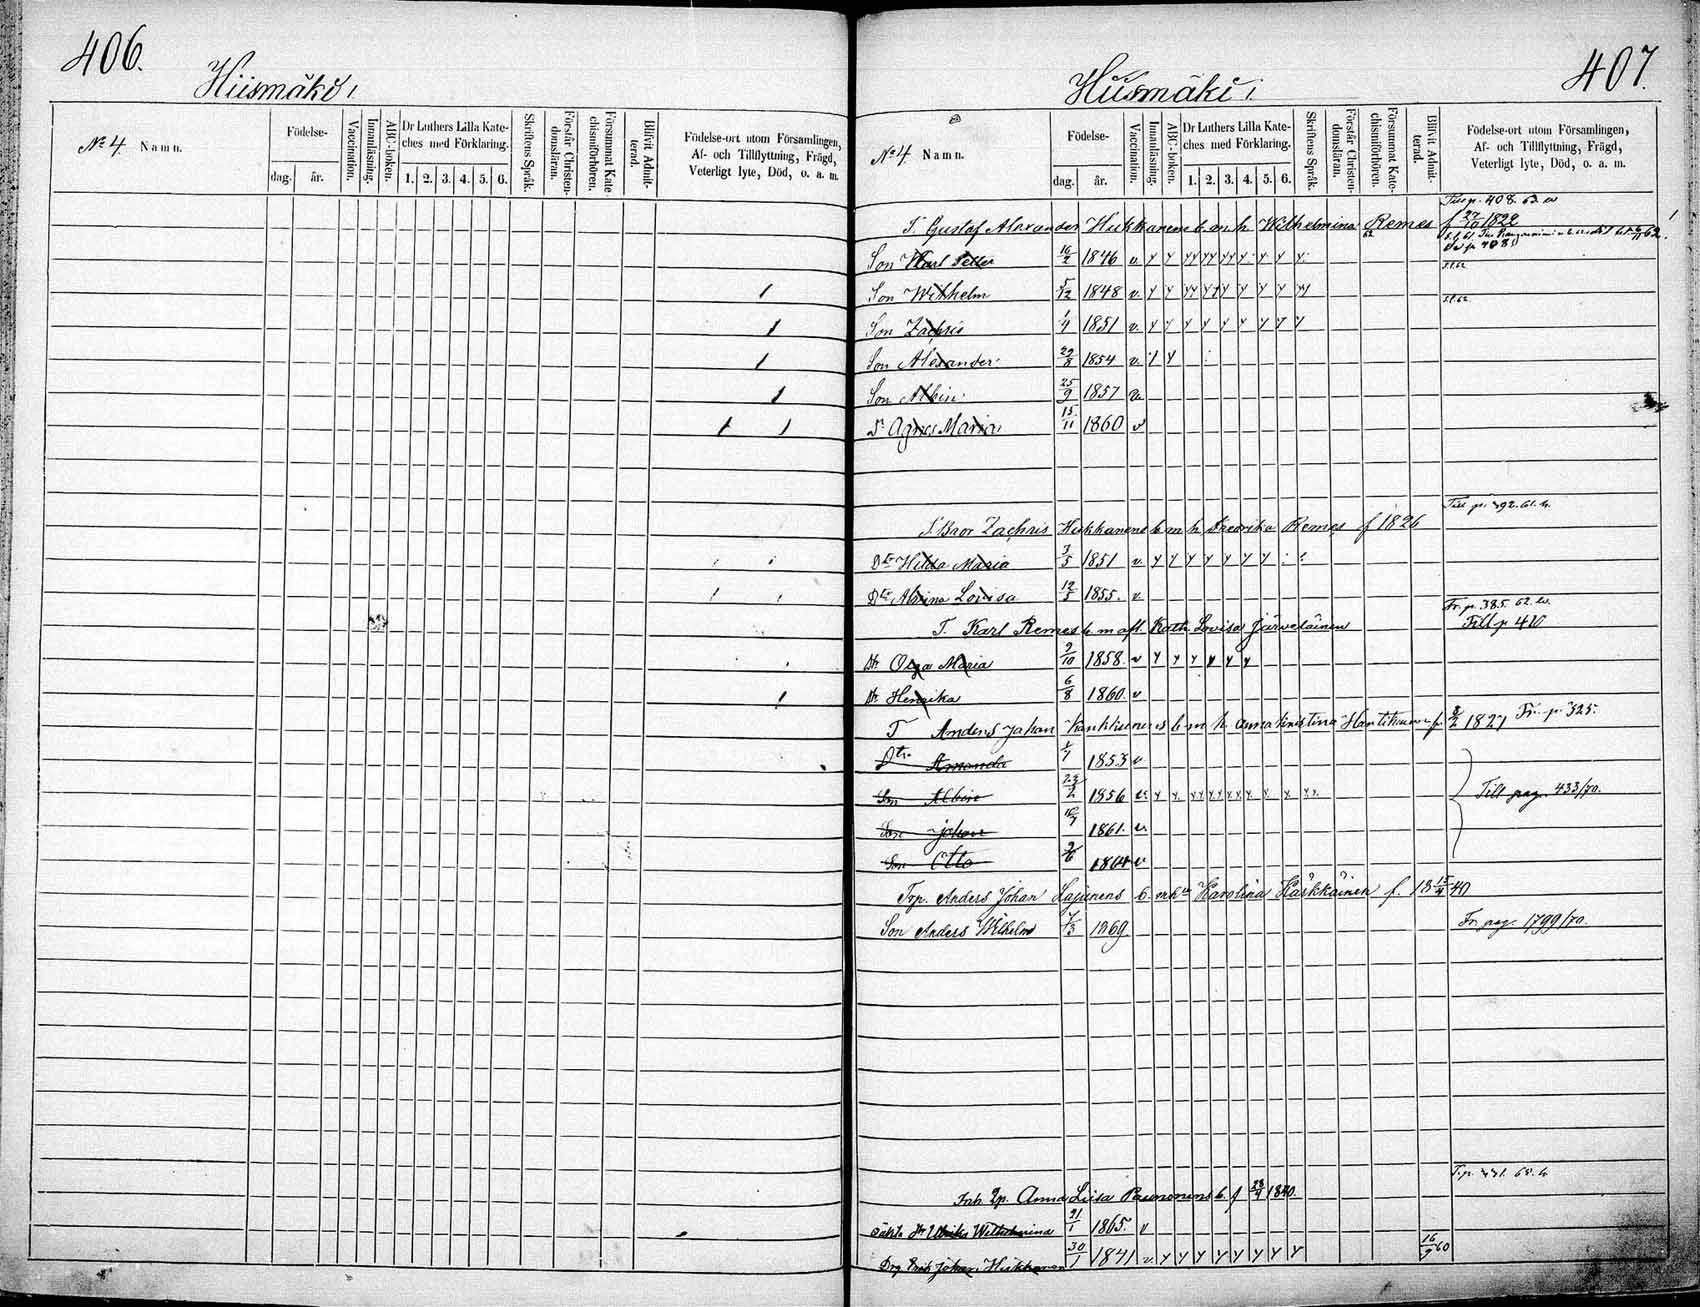 406.
Hiismäki 1.
No 4. Namn.
Födelse-
dag. år.
Vaccination.
Innanläsning.
ABC-boken.
Dr Luthers Lilla Kate-
ches med Förklaring.
1. 2. 3. 4. 5. 6.
Skriftens Språk.
Förstår Christen-
domsläran.
Försummat Kate
chismiförhören.
Blifvit Admit-
terad.
Födelse-ort utom Församlingen,
Af- och Tillflyttning, Frägd,
Veterligt lyte, Död, o. a. m.
407.
Hiismäki 1.
No 4 Namn.
Födelse-
dag. år.
Vaccination.
Innanläsning.
ABC-boken.
Dr Luthers Lilla Kate-
ches med Förklaring.
1. 2. 3. 4. 5. 6.
Skriftens Språk.
Förstår Christen-
domsläran.
Försummat Kate-
chismiförhören.
Blifvit Admit-
terad.
Födelse-ort utom Församlingen,
Af- och Tillflyttning, Frägd,
Veterligt lyte, Död, o. a. m.
p. 408. 63.
T. Gustaf Alexander Hukkanens b. m. h. Wilhelmina Remes f 27/10 1822
Son Karl Petter 16/2 1846 v.
Son Wilhelm 5/12 1848 v.
Son Zachris 1/4 1851 v.
Son Alexander 29/8 1854 v.
Son Albin 25/9 1857 v.
Dr Agnes Maria 15/11 1860 v
Till p. 392. 61.
T. Bror Zachris Hukkanens b m h Fredrika Remes f 1826
Dtr Hilda Maria 3/5 1851 v.
Dtr Alvina Lovisa 12/5 1855. v
Fr. p. 385. 62.
T. Karl Remes b m afl. Kath. Lovisa Järveläinen Till p 410
Dtr Olga Maria 9/10 1858. v
Dtr Henrika 6/8 1860. v
T Anders Johan b m h Anna Kristina f. 8/2 1827 Fr. p. 325.
Dtr Amanda 1853 v
Son Albin 23/2 1856 v. Till pag. 433/70.
Son Johan 1861. v.
Son Otto 2/6 1864 v
Trp. Anders Johan Lajunens b. m h Karolina Kärkkäinen f. 18 15/4 40
Son Anders Wilhelm 7/3 1869. Fr. pag. 1799/70.
Inh. Anna Liisa Paunonens b. f 28/4 1840.
oäkta Dr Ulrika Wilhelmina 21/1 1865. v
Drg Erik Johan Hukkanen 30/1 1841 v. 16/9 60